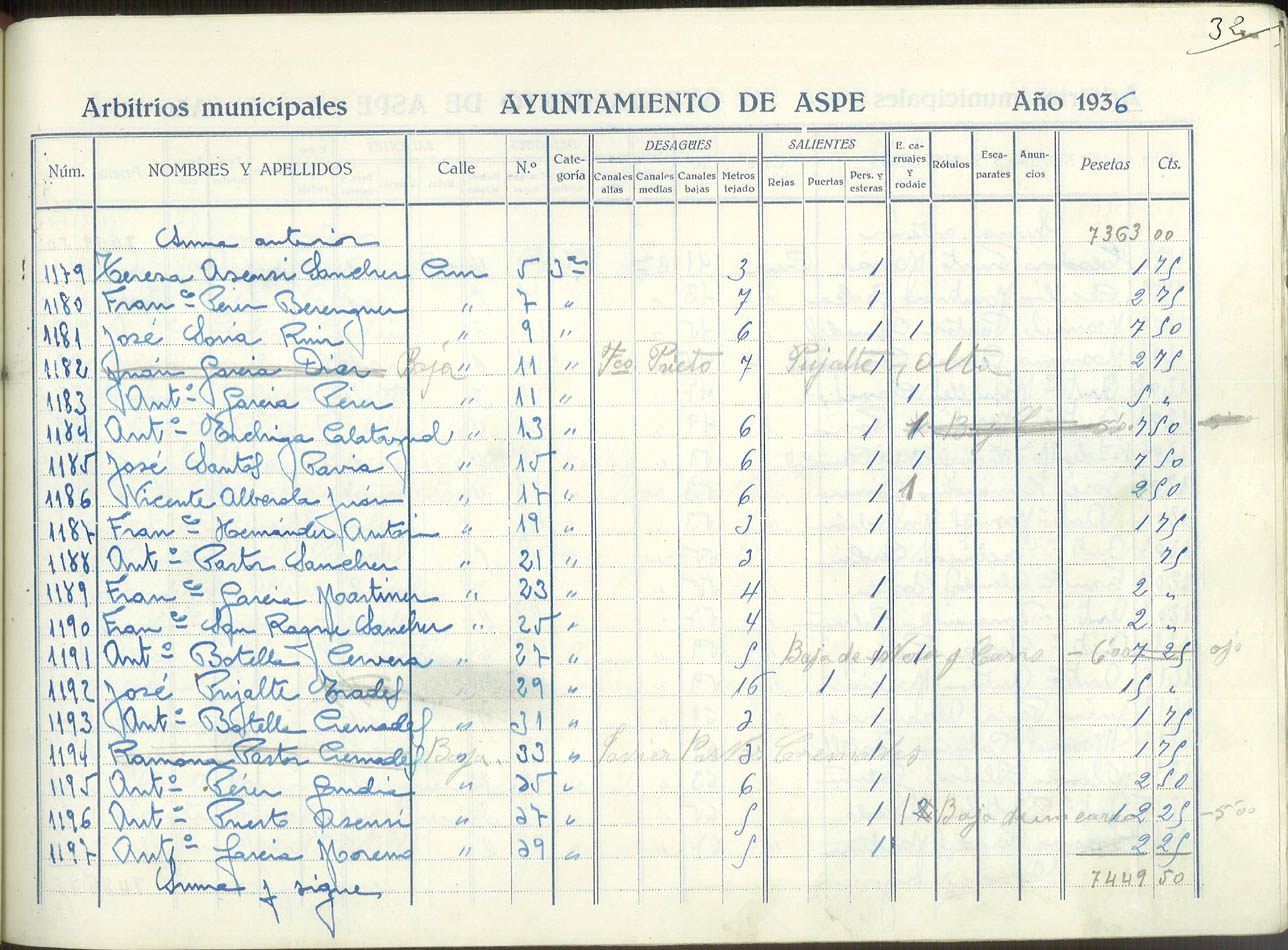 32
Arbitrios municipales AYUNTAMIENTO DE ASPE Año 1936
Núm. NOMBRES Y APELLIDOS Calle N.º Cate-goría DESAGÜES Canales altas Canales medias Canales bajas Metros tejado SALIENTES Rejas Puertas Pers. y esteras E. carruajes y rodaje Rótulos Esca-parates Anun-cios Pesetas Cts.
Suma anterior 7363 00
1179 Teresa Asensi Sancher 5 3ª 3 1 1 75
1180 Fran co Perer Berenguer " 7 " 7 1 2 75
1181 José Soria Ruir " 9 " 6 1 1 7 50
1182 Juán Garcia Diar Baja " 11 " Fco Prieto 7 Pujalte 1 alta 2 75
1183 Antº Garcia Perer " 11 " 1 5 "
1184 Antº Calatayud " 13 " 6 1 1 Baja 7 50
1185 José Santos Pavia " 15 " 6 1 1 7 50
1186 Vicente Alberola Juán " 17 " 6 1 1 2 50
1187 Fran co Hernánder Antón " 19 " 3 1 1 75
1188 Antº Pastor Sancher " 21 " 3 75
1189 Fran co Garcia Martiner " 23 " 4 1 2 "
1190 Fran co Sancher " 25 " 4 1 2 "
1191 Antº Botella Cervera " 27 " 5 Baja de 1 y 1 Carro - 6'00 7 25 ojo
1192 José Pujalte " 29 " 16 1 1 15 "
1193 Antº Botella Cremades " 31 " 3 1 1 75
1194 Ramona Pastor Cremades Baja " 33 " Javier Pastor 3 Cremades 1 1 75
1195 Antº Pérer Gandia " 35 " 6 1 2 50
1196 Antº Puerto Asensi " 37 " 5 1 1 2 Baja de un carro 12 25 -5'00
1197 Antº Garcia Moreno " 39 " 5 1 2 25
Suma y sigue 7449 50